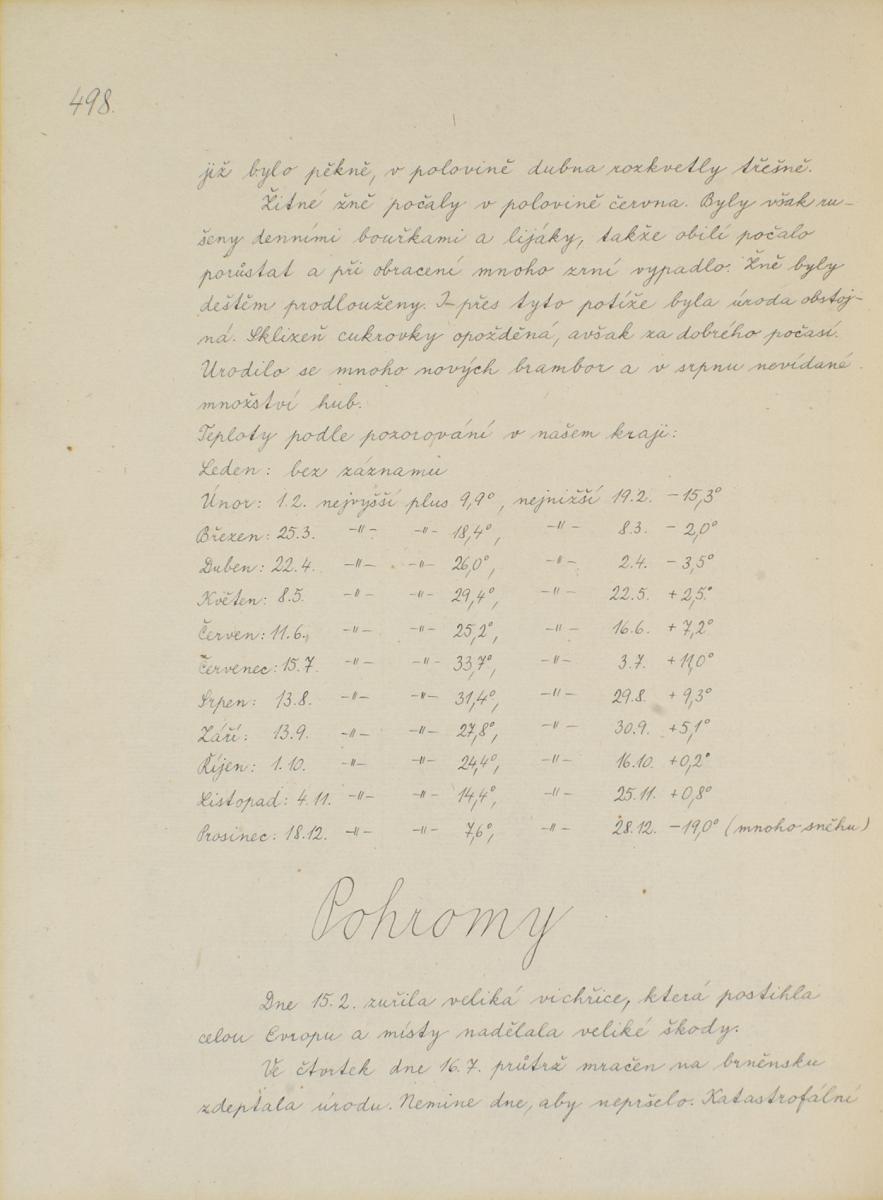 498.
již bylo pěkně, v polovině dubna rozkvetly třešně.
Žitné žně počaly v polovině června. Byly však ru-
šeny denními bouřkami a lijáky, takže obilí počalo
porůstat a při obracení mnoho zrní vypadlo. Žně byly
deštěm prodlouženy. I přes tyto potíže byla úroda obstoj-
ná. Sklizeň cukrovky opožděná, avšak za dobrého počasí.
Urodilo se mnoho nových brambor a v srpnu nevídané
množství hub.
Teploty podle pozorování v našem kraji:
Leden: bez záznamu
Únor: 1.2. nejvyšší plus 9,9°, nejnižší 19.2. -15,3°
Březen: 25.3. -"- -"- 18,4°, -"- 8.3. - 2,0°
Duben: 22.4. -"- -"- 26,0°, -"- 2.4. - 3,5°
Květen: 8.5. -"- -"- 29,4°, -"- 22.5. + 2,5°
Červen: 11.6., -"- -"- 25,2°, -"- 16.6. + 7,2°
Červenec: 15.7. -"- -"- 33,7°, -"- 3.7. + 11,0°
Srpen: 13.8. -"- -"- 31,4°, -"- 29.8. + 9,3°
Září: 13.9. -"- -"- 27,8°, -"- 30.9. +5,1°
Říjen: 1.10. -"- -"- 24,4°, -"- 16.10. +0,2°
Listopad: 4.11. -"- -"- 14,4°, -"- 25.11. +0,8°
Prosinec: 18.12. -"- -"- 7,6°, -"- 28.12. -19,0° (mnoho sněhu)
Pohromy
Dne 15.2. zuřila veliká vichřice, která postihla
celou Evropu a místy nadělala veliké škody.
Ve čtvrtek dne 16.7. průtrž mračen na brněnsku
zdeptala úrodu. Nemine dne, aby nepršelo. Katastrofální